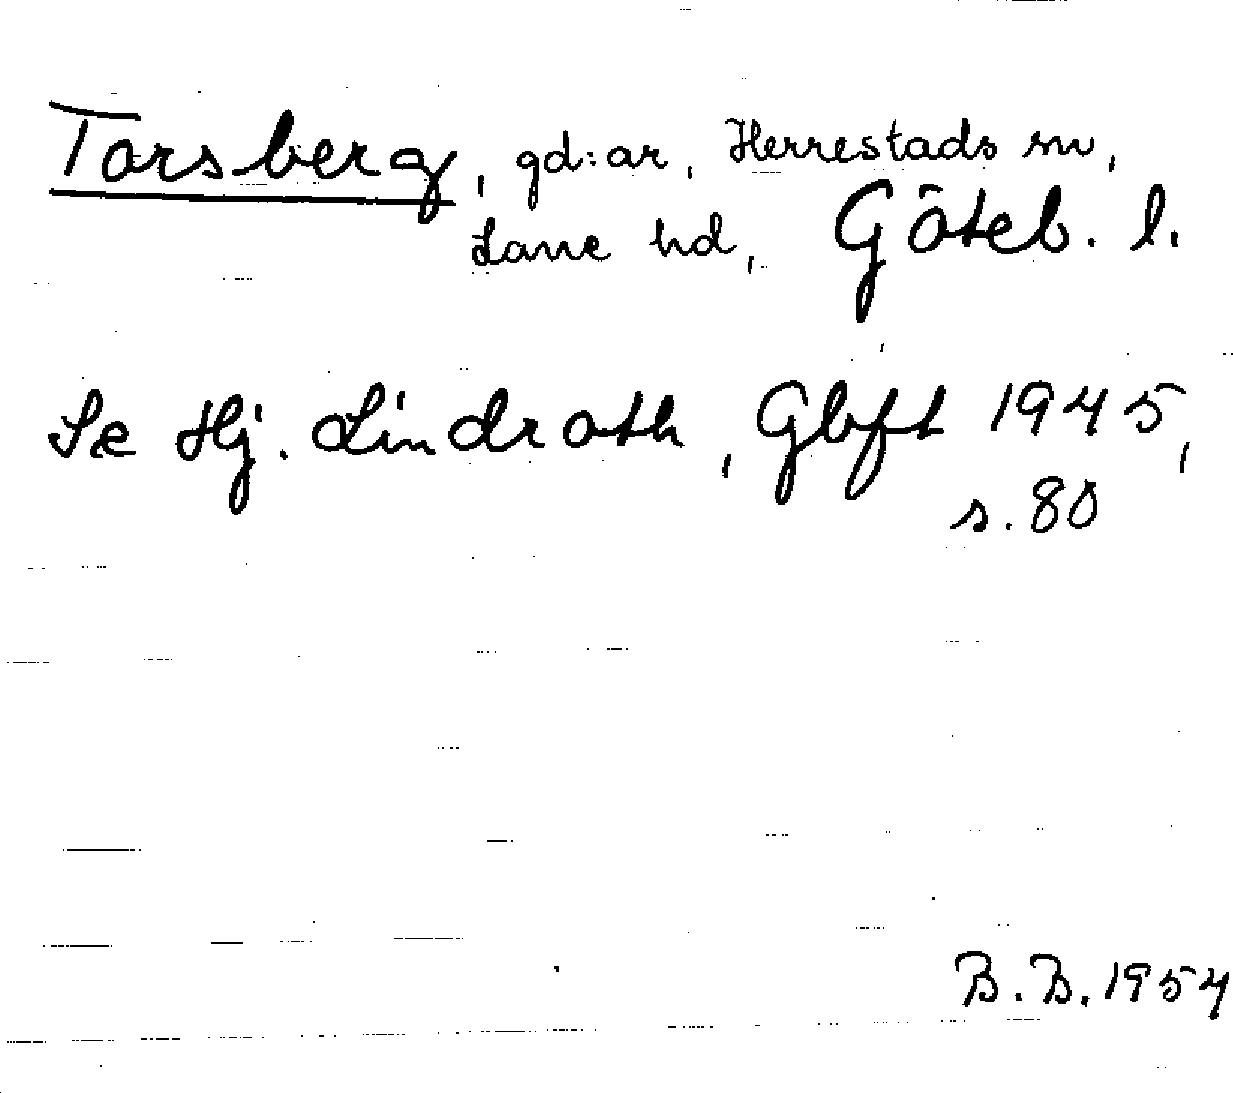 Torsberg, gd:ar, Herrestads sn,
Lane hd, Göteb. l.
Se Hj. Lindroth, Gbft 1945,
s. 80
B.B. 1954